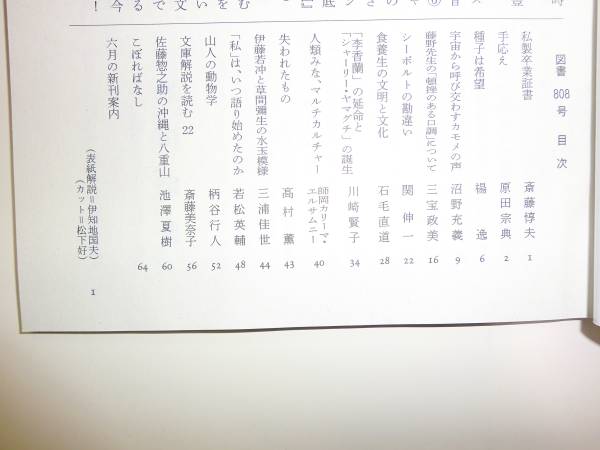 図書 808号 目次
私製卒業証書 斎藤惇夫 1
手応え 原田宗典 2
種子は希望 楊逸 6
宇宙から呼び交わすカモメの声 沼野充義 9
藤野先生の「頓挫のある口調」について 三宝政美 16
シーボルトの勘違い 関伸一 22
食養生の文明と文化 石毛直道 28
「李香蘭」の延命と
「シャーリー・ヤマグチ」の誕生 川崎賢子 34
人類みな、マルチカルチャー 師岡カリーマ・エルサムニー 40
失われたもの 髙村薫 43
伊藤若冲と草間彌生の水玉模様 三浦佳世 44
「私」は、いつ語り始めたのか 若松英輔 48
山人の動物学 柄谷行人 52
文庫解説を読む 22 斎藤美奈子 56
佐藤惣之助の沖縄と八重山 池澤夏樹 60
こぼればなし 64
六月の新刊案内
(表紙解説=伊知地国夫)
(カット=松下好)
1